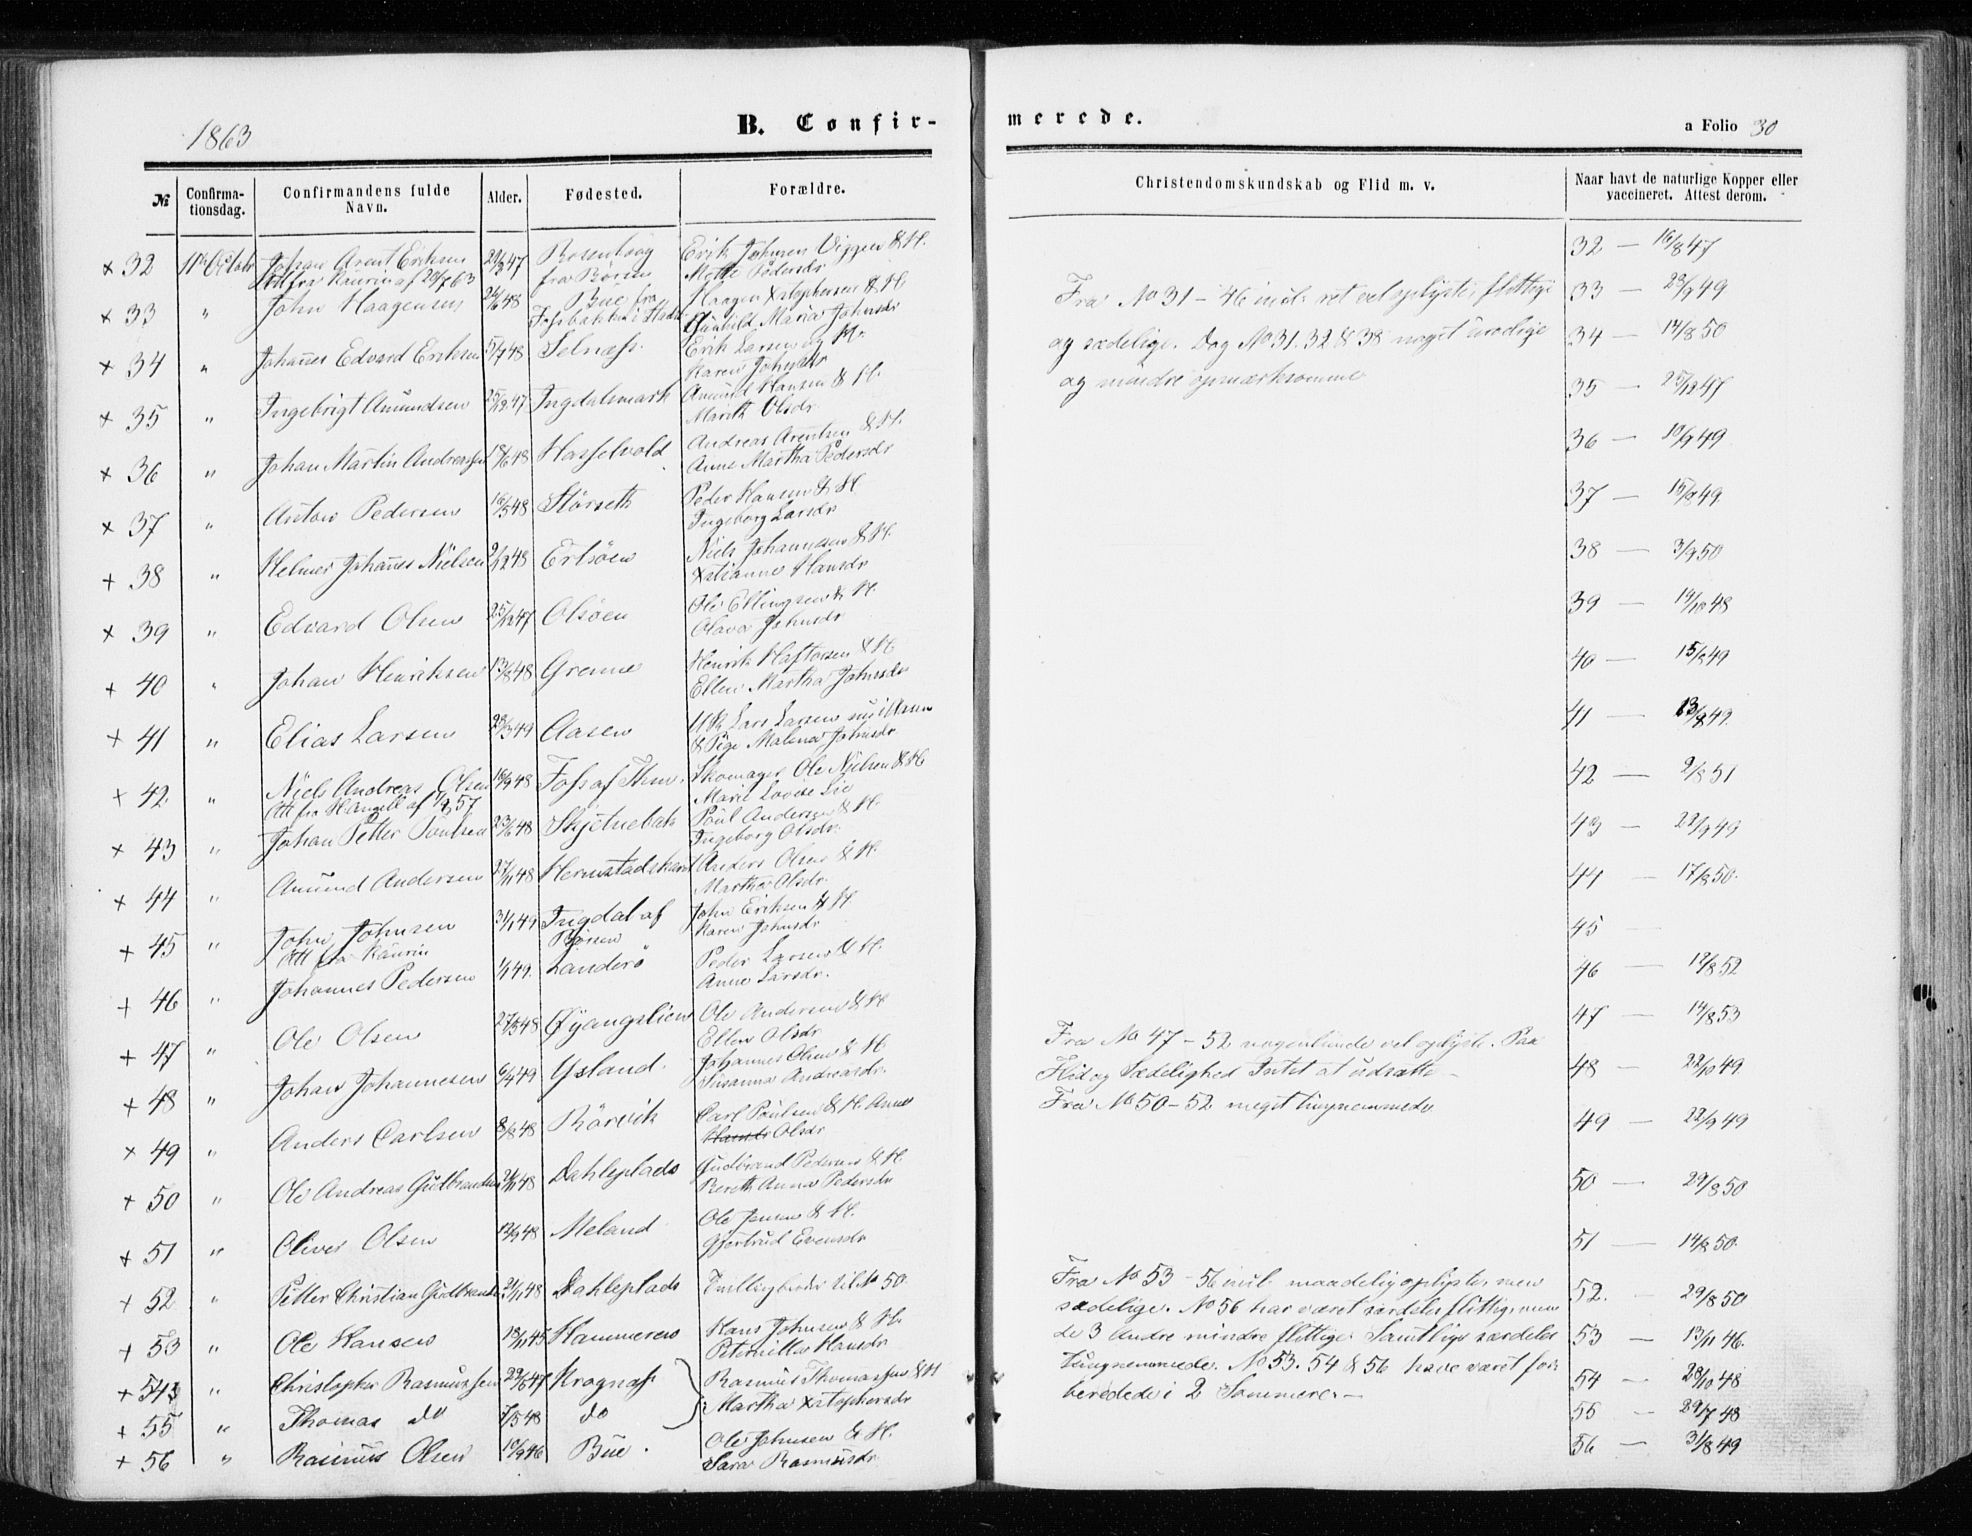 1863
B. Confir-
merede.
a Folio 30
№
Confirma-
tionsdag.
Confirmandens fulde
Navn.
Alder.
Fødested.
Forældre.
Christendomskundskab og Flid m. v.
Naar havt de naturlige Kopper eller
vaccineret. Attest derom.
+ 32 11te Octobr Johan Arent Eriksen 47 Rosenhaug Erik Johnsen Viggen & H.
Att fra Kaurin af 20/7 63 fra Börsen Mette Pedersdr
+ 33 " John Haagensen 48 Bue fra Haagen Xstophersen & H
Gunhild Maria Johnsdr
+ 34 " Johannes Edvard Eriksen 5/7 48 Selnæss. Erik Larsen og H.
Karen Johnsdr
+ 35 " Ingebrigt Amundsen 25/12 47 Ingdalsmark Amund Hansen & H.
Marith Olsdr
+ 36 " Johan Martin Andreassen 18/6 48 Hasselvold Andreas Arentsen & H.
Anne Martha Pedersdr
+ 37 " Anton Pedersen 16/5 48 Störseth Peder Hansen & H
Ingeborg Larsdr
+ 38 " Helmer Johannes Nielsen 2/12 48 Ertsöen Niels Johannesen & H.
Xstianne Hansdr
+ 39 " Edvard Olsen 25/12 47 Olsöen Ole Ellingsen & H
Olava Johnsdr
+ 40 " Johan Henriksen 13/8 48 Grenne Henrik Haftorsen & H
Ellen Martha Johnsdr
+ 41 " Elias Larsen 23/3 49 Aasen Lars Larsen
& Pige Malena Johnsdr
+ 42 " Niels Andreas Olsen 16/9 48 Foss af Thm. Skomager Ole Nielsen & H
Att fra Hangell af 57 Marit Lovise Lie
+ 43 " Johan Petter Paulsen 23/6 48 Skjetnebak Paul Andersen & H.
Ingeborg Olsdr.
+ 44 " Amund Andersen 27/11 48 Anders Olsen & H.
Martha Olsdr.
+ 45 " John Johnsen 31/1 49 Ingdal af John Eriksen & H
Att fra Kaurin Börsen Karen Johnsdr
+ 46 " Johannes Pedersen 1/1 49. Landerö Peder Larsen & H.
Anne Larsdr.
+ 47 " Ole Olsen 27/5 48 Øyangslien Ole Andersen & H
Ellen Olsdr
+ 48 " Johan Johannesen 6/4 49 Ysland. Johannes Olsen & H
Susanna Andreasdr.
+ 49 " Anders Carlsen 8/8 48 Rörvik Carl Paulsen & H. Anne
Hansdr Olsdr
+ 50 " Ole Andreas Gudbrandsen 21/11 48 Dahleplads Gudbrand Pedersen & H.
Bereth Anna Pedersdr
+ 51 " Oliver Olsen 12/9 48 Meland Ole Jensen & H.
Gjertrud Evensdr
+ 52 " Petter Christian Gudbrands 21/11 48 Dahleplads Tvillingbroder til No 50
+ 53 " Ole Hansen 18/11 45 Hammeren Hans Johnsen & H.
Peternille Hansdr
+ 54 " Christopher Rasmussen 29/6 47 Kragnæss Rasmus Thomassen & H
Martha Xstophersdr
+ 55 " Thomas do 7/5 48 do
+ 56 " Rasmus Olsen 10/9 46 Bue. Ole Johnsen & H.
Sara Rasmusdr
Fra No 31 - 46 incl. ret vel oplyste, flittige
og sædelige. Dog No 31. 32 & 38 noget urolige
og mindre opmærksomme
Fra No 47 - 52 nogenlunde vel oplyste. Paa
Flid og Sædelighed Intet at udsætte -
Fra No 50 - 52 meget tungnemmede
Fra No 53 - 56 incl. maadelig oplyste, men
sædelige. No 56 har været særdeles flittig, men
de 3 Andre mindre flittige. Samtlige særdeles
tungnemmede. No 53. 54 & 56 have været for-
beredede i 2 Sommere. -
32 - 16/8 47
33 - 23/9 49
34 - 14/8 50
35 - 25/12 47
36 - 10/9 49
37 - 15/8 49
38 - 3/9 50
39 - 19/10 48
40 - 15/8 49
41 - 13/8 49.
42 - 2/8 51
43 - 22/9 49
44 - 17/8 50.
45 -
46 - 12/8 52
47 - 14/8 53
48 - 22/10 49.
49 - 22/9 49
50 - 29/8 50
51 - 14/8 50.
52. - 29/8 50
53 - 13/11 46.
54 - 20/10 48
55 - 29/7 48
56 - 31/8 49